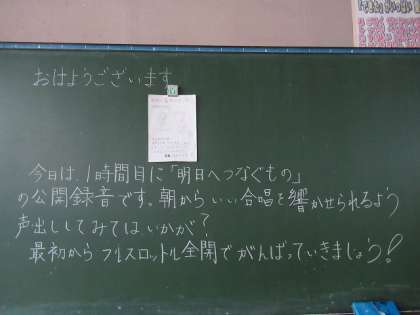 おはようございます
今日は、1時間目に「明日へつなぐもの」
の公開録音です。朝からいい合唱を響かせられるよう
声出ししてみてはいかが?
最初からフルスロットル全開でがんばっていきましょう!